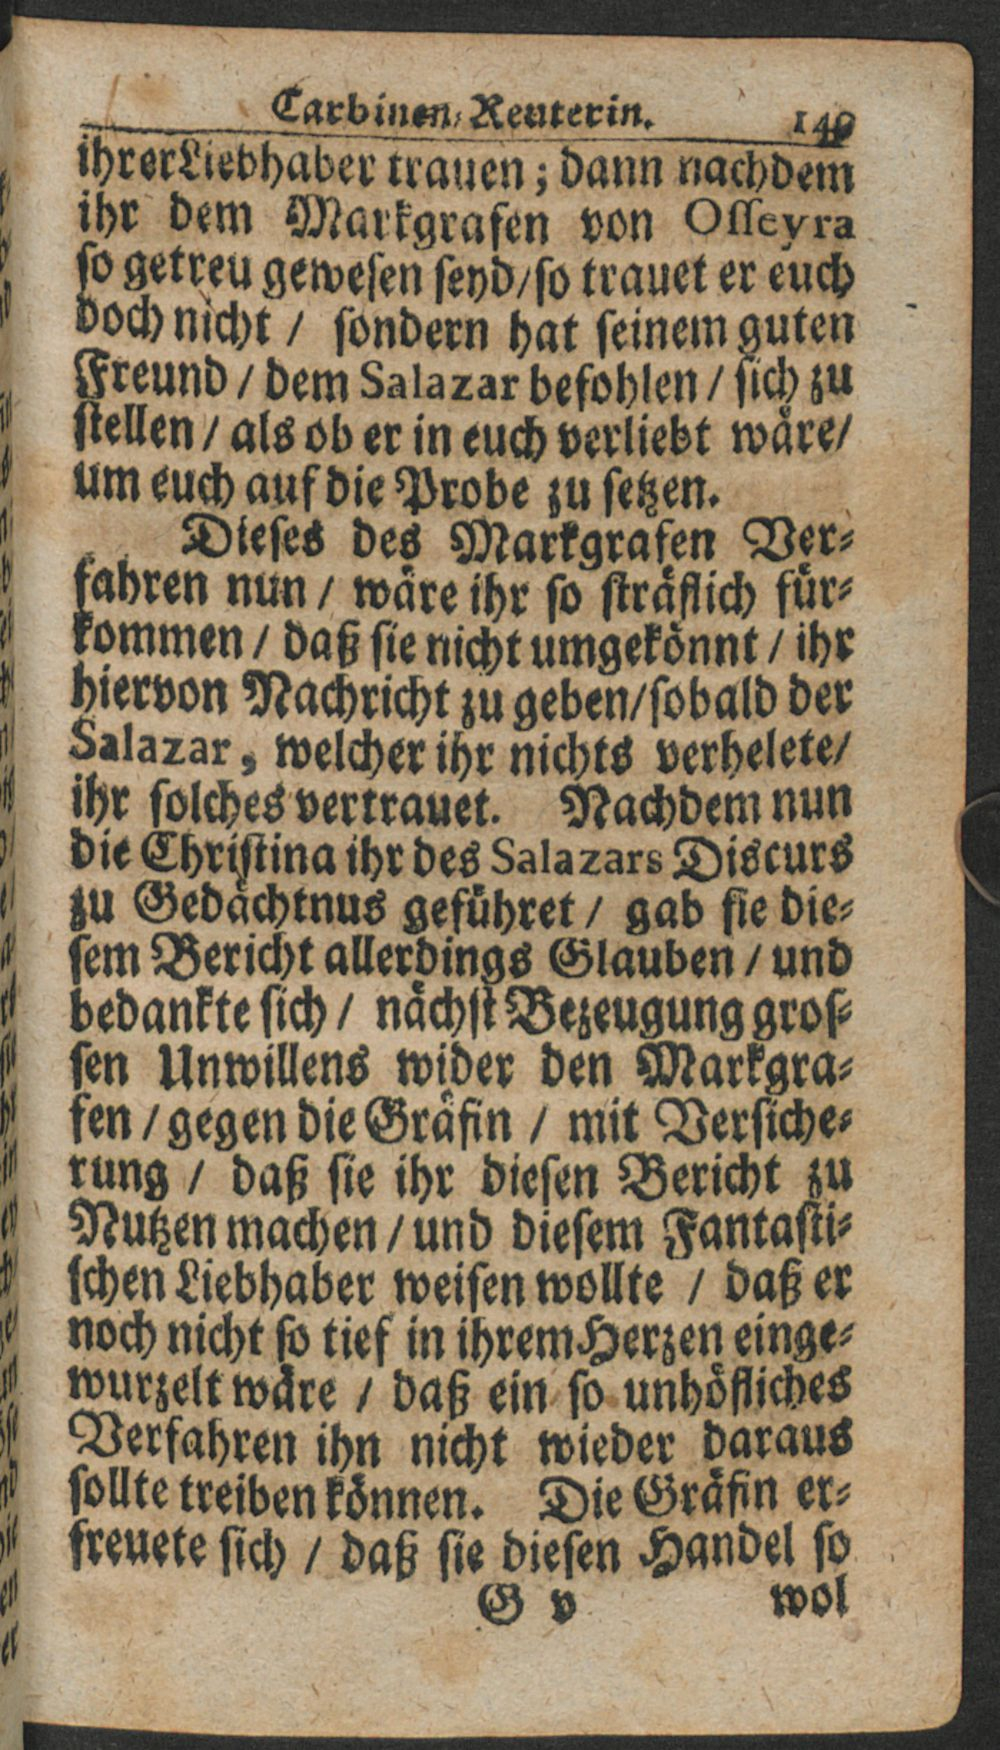 Carbinen-Reuterin. 149
ihrer Liebhaber trauen; dann nachdem
ihr dem Markgrafen von Osseyra
so getreu gewesen seyd/so trauet er euch
doch nicht / sondern hat seinem guten
Freund / dem Salazar befohlen / sich zu
stellen / als ob er in euch verliebt wäre/
um euch auf die Probe zu setzen.
Dieses des Markgrafen Ver-
fahren nun / wäre ihr so sträflich für-
kommen / daß sie nicht umgekönnt / ihr
hiervon Nachricht zu geben/sobald der
Salazar, welcher ihr nichts verhelete/
ihr solches vertrauet. Nachdem nun
die Christina ihr des Salazars Discurs
zu Gedächtnus geführet / gab sie die-
sem Bericht allerdings Glauben / und
bedankte sich / nächst Bezeugung gros-
sen Unwillens wider den Markgra-
fen / gegen die Gräfin / mit Versiche-
rung / daß sie ihr diesen Bericht zu
Nutzen machen / und diesem Fantasti-
schen Liebhaber weisen wollte / daß er
noch nicht so tief in ihrem Herzen einge-
wurzelt wäre / daß ein so unhöfliches
Verfahren ihn nicht wieder daraus
sollte treiben können. Die Gräfin er-
freuete sich / daß sie diesen Handel so
G v wol